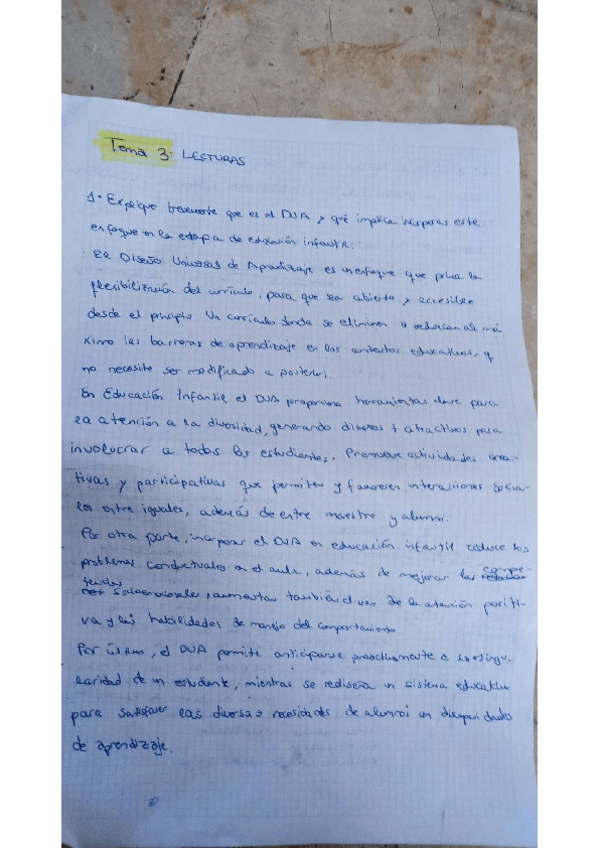 Tema 3: LECTURAS
1. Explique brevemente que es el DUA y qué implica incorporar este
enfoque en la etapa de educación infantil.
El Diseño Universal de Aprendizaje es un enfoque que prima la
flexibilización del currículo, para que sea abierto y accesible
desde el principio. Un currículo donde se eliminen o reduzcan al má
ximo las barreras de aprendizaje en los contextos educativos, y
no necesite ser modificado a posteriori.
En Educación Infantil el DUA proporciona herramientas clave para
la atención a la diversidad, generando diseños + atractivos para
involucrar a todos los estudiantes. Promueve actividades crea-
tivas y participativas que permiten y favorecen interacciones socia-
les entre iguales, además de entre maestro y alumno.
Por otra parte, incorporar el DUA en educación infantil reduce los
problemas conductuales en el aula, además de mejorar las compe-
tencias socioemocionales, aumentan también el uso de la atención positi-
va y las habilidades de manejo del comportamiento
Por último, el DUA permite anticiparse proactivamente a la singu-
laridad de un estudiante, mientras se rediseña un sistema educativo
para satisfacer las diversas necesidades de alumnos con discapacidades
de aprendizaje.